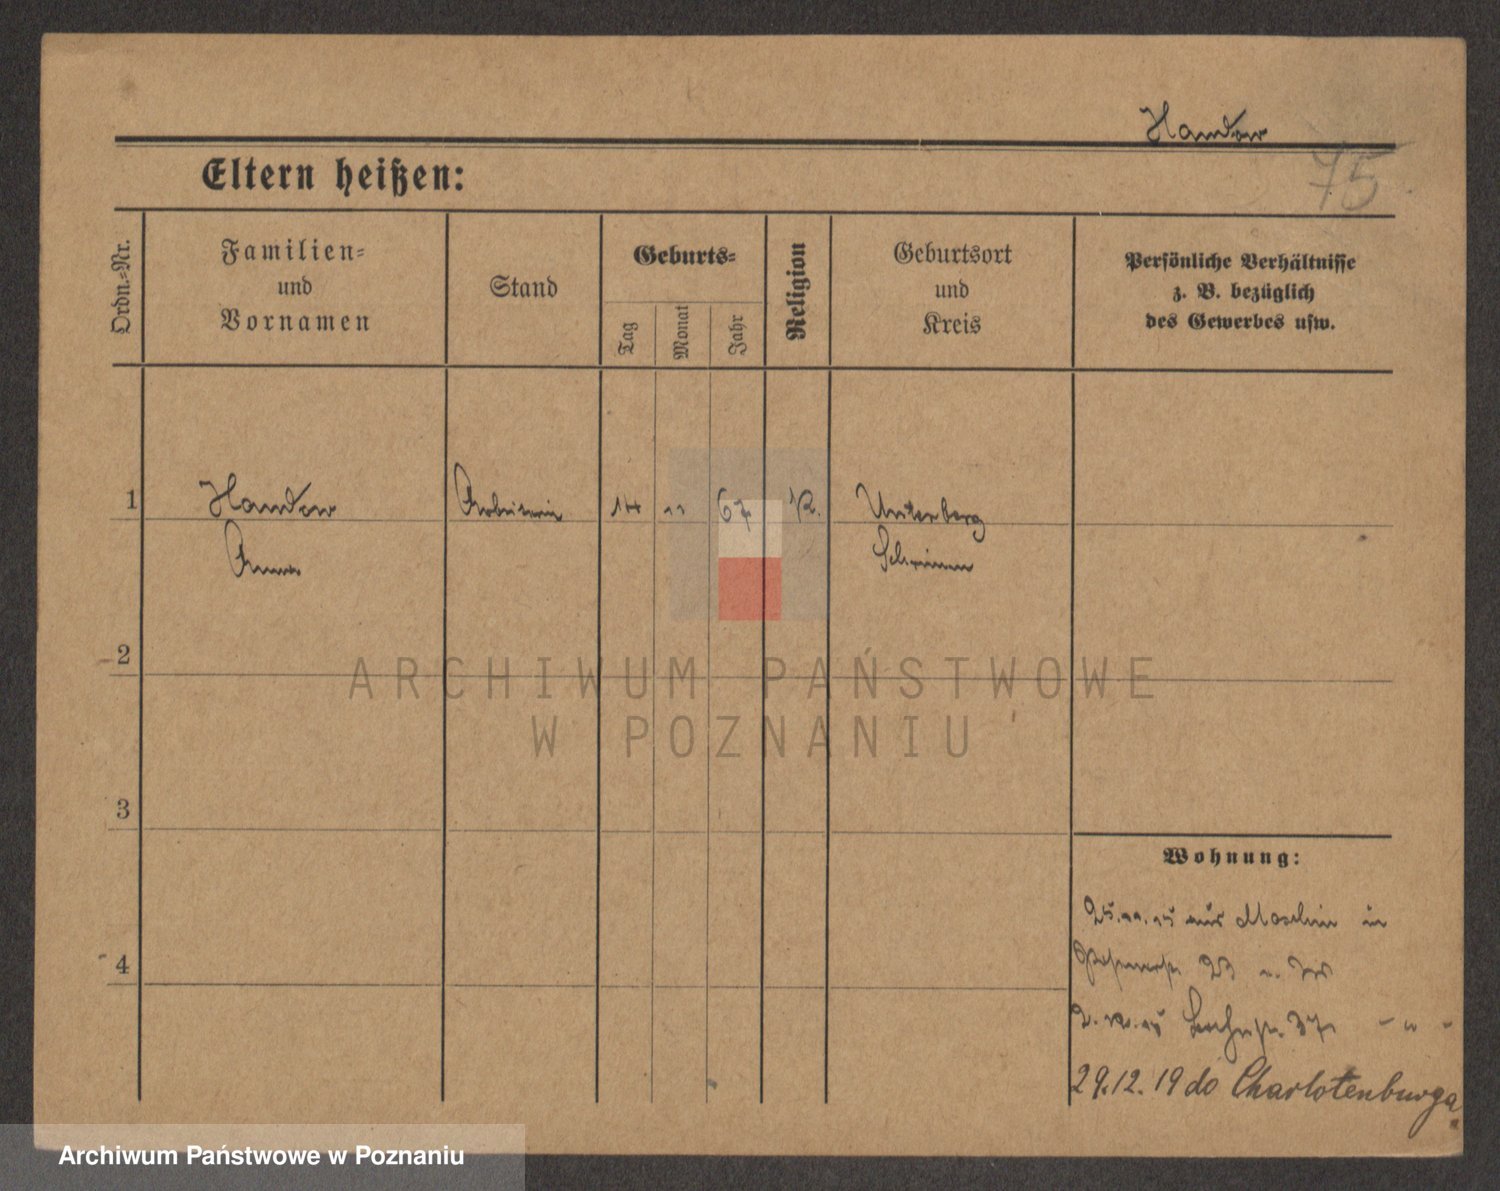 Handow
75
Eltern heißen:
Ordn.=Nr.
Familien=
und
Vornamen
Stand
Geburts=
Tag
Monat
Jahr
Religion
Geburtsort
und
Kreis
Persönliche Verhältnisse
z. B. bezüglich
des Gewerbes usw.
1
Handow
Arbeiterin
14
11
67
K.
Unterberg
Anna
Schrimm
2
ARCHIWUM PAŃSTWOWE
W POZNANIU
3
Wohnung:
25.11.15 aus Moschin in
4
23
2.12.15
37
29.12.19 do Charlotenburga
Archiwum Państwowe w Poznaniu